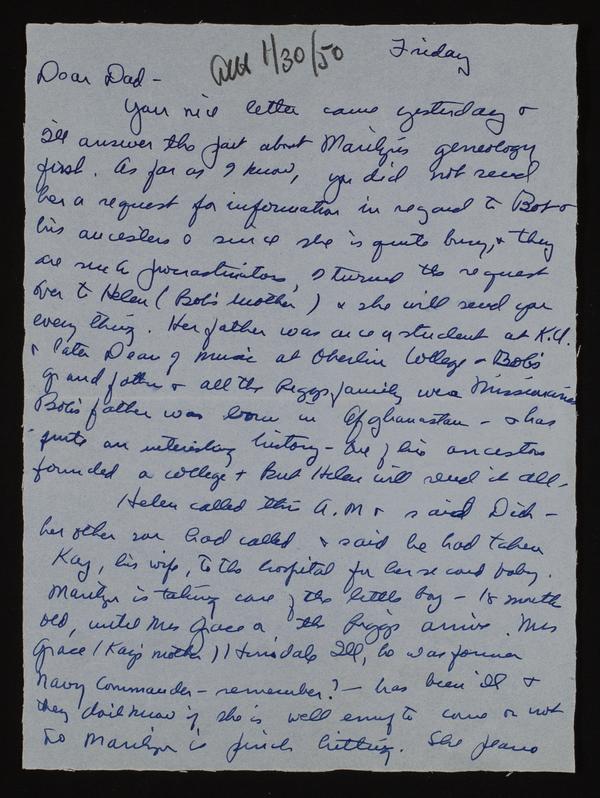 Friday
ans 1/30/50
Dear Dad -
Your nice letter came yesterday &
I'll answer the part about Marilyn's geneology
first. As far as I know, you did not send
her a request for information in regard to Bob &
his ancesters & since she is quite busy, & they
are such procrastinators, I turned the request
over to Helen (Bob's mother) & she will send you
every thing. Her father was once a student at K.U.
& later Dean of Music at Oberlin College - Bob's
grandfather & all the Riggs family were Missionaries
Bob's father was born in Afghanastan - & has
quite an interesting history - One of his ancestors
founded a college & But Helen will send it all -
Helen called this A.M & said Dick -
her other son had called & said he had taken
Kay, his wife, to the hospital for her second baby.
Marilyn is taking care of the little boy - 18 month
old, until Mrs Grace or the Riggs arrive. Mrs
Grace (Kay's mother) Hinsdale Ill, was former
Navy Commander - remember? - has been ill &
they don't know if she is well enough to come or not
So Marilyn is pinch hitting. She